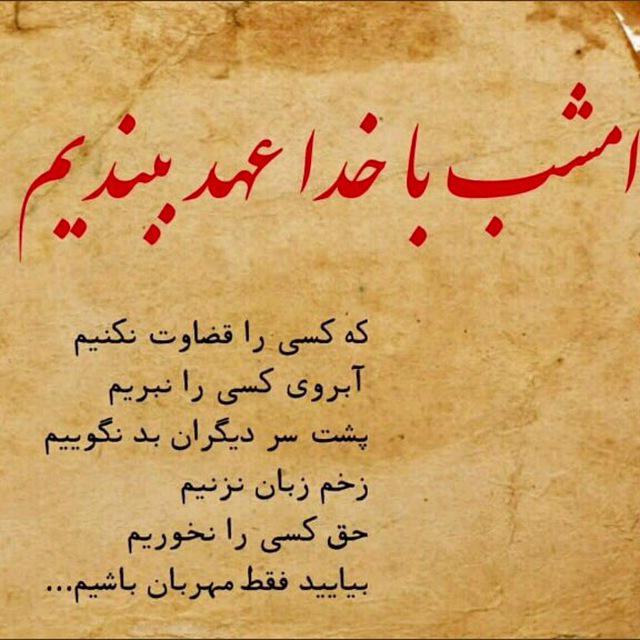 امشب با خدا عهد ببندیم
که کسی را قضاوت نکنیم
آبروی کسی را نبریم
پشت سر دیگران بد نگوییم
زخم زبان نزنیم
حق کسی را نخوریم
بیایید فقط مهربان باشیم...